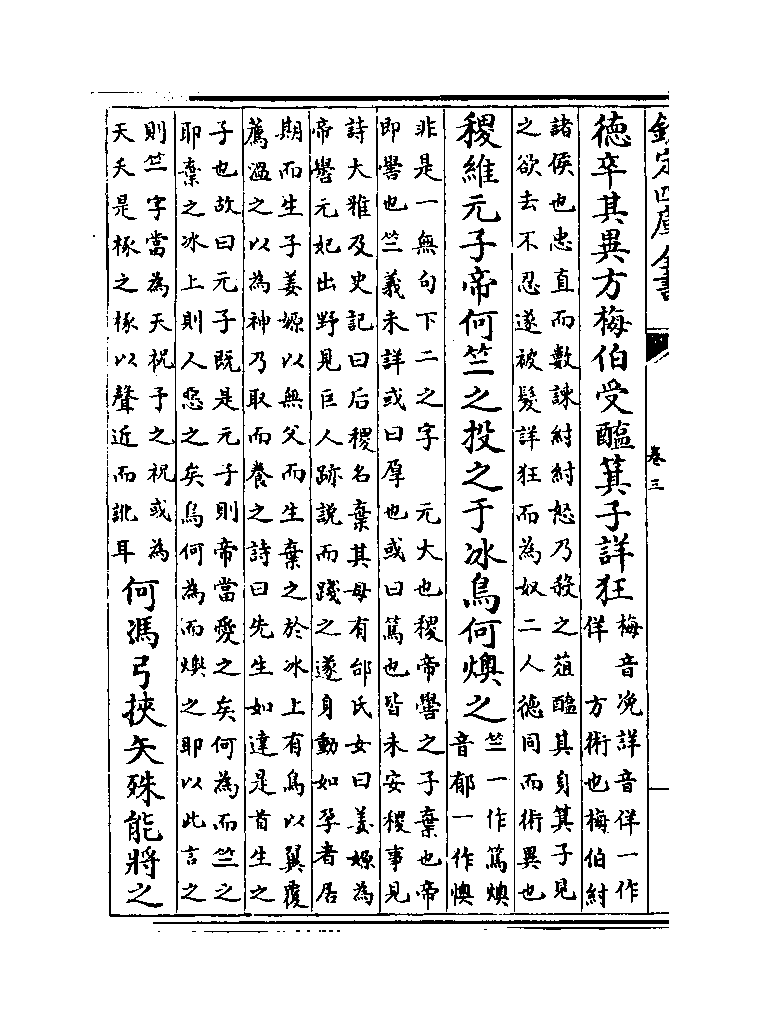 欽定四庫全書 卷三
德卒其異方梅伯受醢箕子詳狂
梅音浼詳音佯一作
佯 方術也梅伯紂
諸侯也忠直而數諫紂紂怒乃殺之葅醢其身其子見
之欲去不忍遂被髮詳狂而為奴二人德同而術異也
稷維元子帝何竺之投之于冰鳥何燠之
竺一作篤燠
音郁一作懊
非是一無句下二之字 元大也稷帝嚳之子棄也帝
即嚳也竺義未詳或曰厚也或曰篤也皆未安稷事見
詩大雅及史記曰后稷名棄其母有邰氏女曰姜嫄為
帝嚳元妃出野見巨人跡說而踐之遂身動如孕者居
期而生子姜嫄以無父而生棄之於冰上有鳥以翼覆
薦溫之以為神乃取而養之詩曰先生如達是首生之
子也故曰元子既是元子則帝當愛之矣何為而竺之
耶棄之冰上則人惡之矣鳥何為而燠之耶以此言之
則竺字當為天祝予之祝或為
天夭是椓之椓以聲近而訛耳
何馮弓挾矢殊能將之